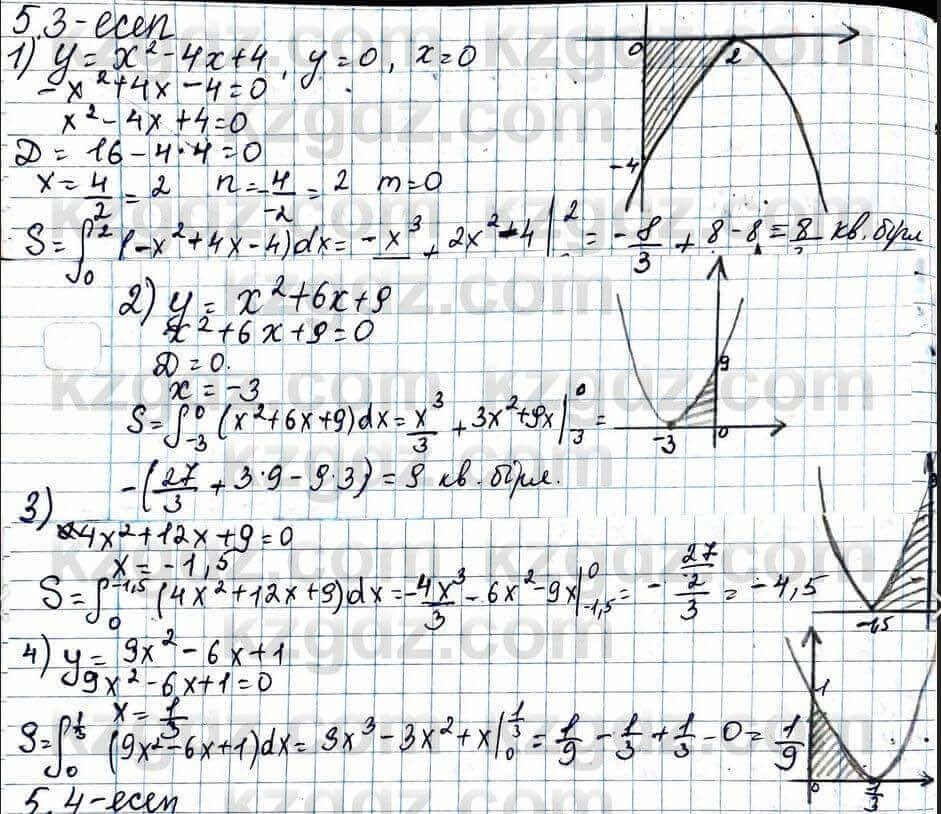 5.3-есеп
1) y = x² - 4x + 4, y = 0, x = 0
-x² + 4x - 4 = 0
x² - 4x + 4 = 0
D = 16 - 4·4 = 0
x = 4/2 = 2 n = -4/-2 = 2 m = 0
S = ∫₀² (-x² + 4x - 4)dx = -x³ + 2x² - 4 |² = -8/3 + 8 - 8 = 8 кв. бірл
0 2 -4
2) y = x² + 6x + 9
x² + 6x + 9 = 0
D = 0.
x = -3
S = ∫₋₃⁰ (x² + 6x + 9)dx = x³/3 + 3x² + 9x |₋₃⁰ =
-(27/3 + 3·9 - 9·3) = 9 кв. бірл.
9 -3 0
3)
4x² + 12x + 9 = 0
x = -1,5
S = ∫₀^-1,5 (4x² + 12x + 9)dx = -4x³/3 - 6x² - 9x |₋₁,₅⁰ = - 27/2/3 = -4,5
-1,5
4) y = 9x² - 6x + 1
9x² - 6x + 1 = 0
x = 1/3
S = ∫₀^1/3 (9x² - 6x + 1)dx = 3x³ - 3x² + x |₀^1/3 = 1/9 - 1/3 + 1/3 - 0 = 1/9
1 0 1/3
5.4-есеп
kzgdz.com